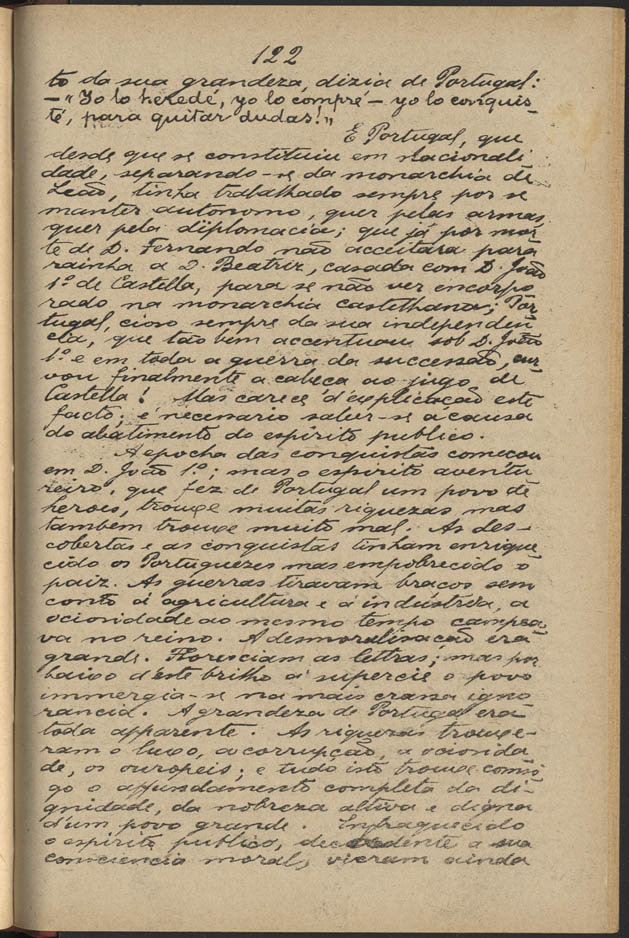 122
to da sua grandeza, dizia de Portugal:
— "Yo lo heredé, yo lo compré — yo lo conquis-
té, para quitar dudas!"
E Portugal, que
desde que se constituiu em nacionali-
dade, separando-se da monarchia de
Leão, tinha trabalhado sempre por se
manter autonomo, quer pelas armas,
quer pela diplomacia; que já por mor-
te de D. Fernando não acceitára para
rainha a D. Beatriz, casada com D. João
1º de Castella, para se não ver encorpo
rado na monarchia castelhana; Por-
tugal, cioso sempre da sua independen-
cia, que tão bem accentuou sob D. João
1º e em toda a guerra da successão, cur-
vou finalmente a cabeça ao jugo de
Castella! Mas carece d'explicação este
facto; é necessario saber-se a causa
do abatimento do espirito publico.
A epocha das conquistas começou
em D. João 1º; mas o espirito aventu
reiro, que fez de Portugal um povo de
heroes, trouxe muitas riquezas mas
tambem trouxe muito mal. As des-
cobertas e as conquistas tinham enrique
cido os Portuguezes mas empobrecido o
paiz. As guerras tiravam braços sem
conto á agricultura e á industria, a
ociosidade ao mesmo tempo campea-
va no reino. A desmoralisação era
grande. Floresciam as letras; mas por
baixo d'este brilho á supercie o povo
immergia-se na mais crassa igno
rancia. A grandeza de Portugal era
toda apparente. As riquezas trouxe-
ram o luxo, a corrupção, a ociosida
de, os ouropeis; e tudo isto trouxe comsi-
go o affundamento completo da di-
gnidade, da nobreza altiva e digna
d'um povo grande. Enfraquecido
o espirito publico, decadente a sua
consciencia moral, vieram ainda